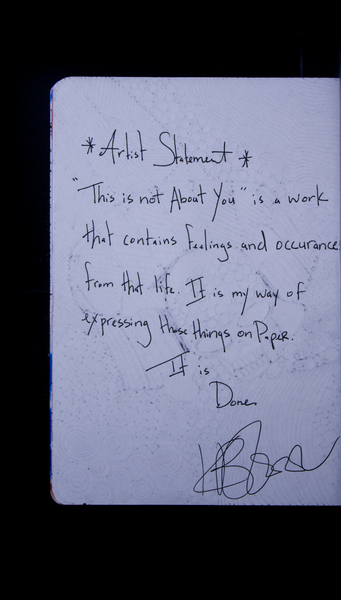 * Artist Statement *
"This is not About You" is a work
that contains feelings and occurance
from that life. It is my way of
expressing those things on Paper.
It is
Done.